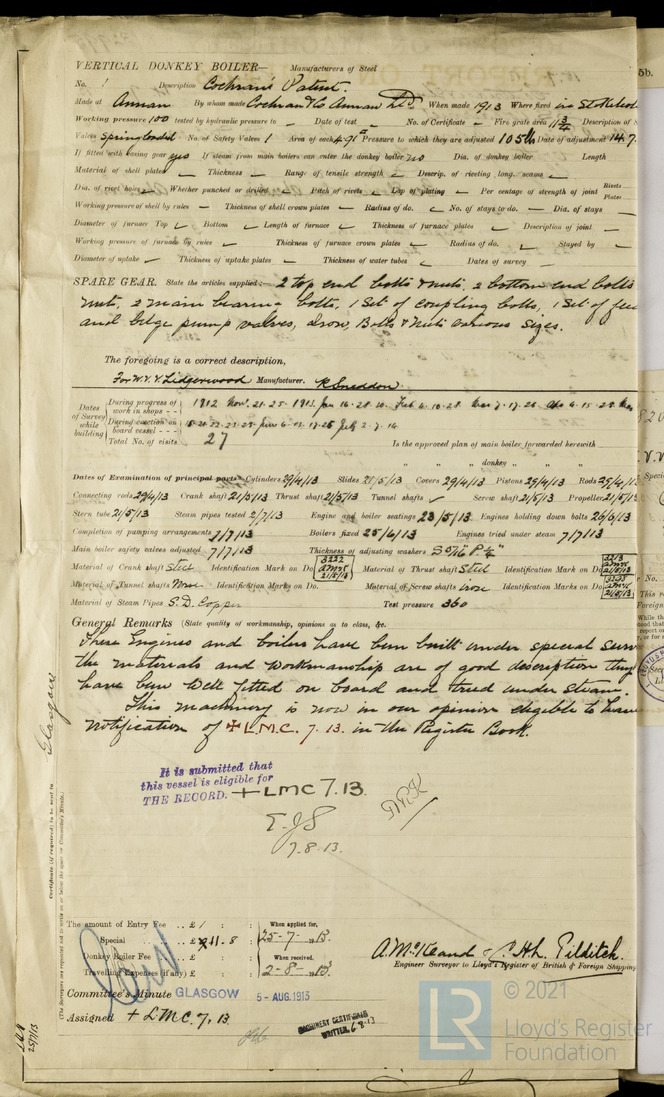 VERTICAL DONKEY BOILER— Manufacturers of Steel
No. 1 Description Cochran's Patent.
Made at Annan By whom made Cochran & Co Annan Ltd. When made 1913 Where fixed in Stokehold
Working pressure 100 tested by hydraulic pressure to – Date of test – No. of Certificate – Fire grate area 11 3/4 Description of S
Valves Spring loaded No. of Safety Valves 1 Area of each 4.9" Pressure to which they are adjusted 105 lb Date of adjustment 14.7.
If fitted with easing gear yes If steam from main boilers can enter the donkey boiler no Dia. of donkey boiler Length
Material of shell plates – Thickness – Range of tensile strength – Descrip. of riveting long. seams –
Dia. of rivet holes – Whether punched or drilled – Pitch of rivets – Lap of plating – Per centage of strength of joint Rivets Plates
Working pressure of shell by rules – Thickness of shell crown plates – Radius of do. – No. of stays to do. – Dia. of stays
Diameter of furnace Top – Bottom – Length of furnace – Thickness of furnace plates – Description of joint –
Working pressure of furnace by rules – Thickness of furnace crown plates – Radius of do. – Stayed by –
Diameter of uptake – Thickness of uptake plates – Thickness of water tubes – Dates of survey –
SPARE GEAR. State the articles supplied:— 2 top end bolts & nuts, 2 bottom end bolts
nuts, 2 main bearing bolts, 1 Set of coupling bolts, 1 Set of feed
and bilge pump valves, Iron, Bolts & Nuts various sizes.
The foregoing is a correct description,
For W. V. V. Lidgerwood Manufacturer. R Sneddon
Dates of Survey while building
During progress of work in shops - - 1912 Nov. 21. 25. 1913. Jan 16. 28. Feb 6. 10. 28 Mar 7. 17. 26
During erection on board vessel - - -
Total No. of visits 27 Is the approved plan of main boiler forwarded herewith
" " " donkey " " "
Dates of Examination of principal parts—Cylinders 29/4/13 Slides 21/5/13 Covers 29/4/13 Pistons 29/4/13 Rods 29/4/13
Connecting rods 29/4/13 Crank shaft 21/5/13 Thrust shaft 21/5/13 Tunnel shafts – Screw shaft 21/5/13 Propeller 21/5/13
Stern tube 21/5/13 Steam pipes tested 2/7/13 Engine and boiler seatings 23/5/13 Engines holding down bolts 26/6/13
Completion of pumping arrangements 7/7/13 Boilers fixed 25/6/13 Engines tried under steam 7/7/13
Main boiler safety valves adjusted 7/7/13 Thickness of adjusting washers
Material of Crank shaft Steel Identification Mark on Do. 3232 21/5/13 Material of Thrust shaft Steel Identification Mark on Do. 3213 21/5/13
Material of Tunnel shafts None Identification Marks on Do. Material of Screw shafts iron Identification Marks on Do. 21/5/13
Material of Steam Pipes S. D. Copper Test pressure 360
General Remarks (State quality of workmanship, opinions as to class, &c.
These Engines and boilers have been built under special surv
the materials and workmanship are of good description they
have been well fitted on board and tried under steam.
This machinery is now in our opinion eligible to have
notification of + L.M.C. 7.13. in the Register Book.
It is submitted that
this vessel is eligible for
THE RECORD. + LMC 7.13.
7.8.13.
Glasgow
Certificate (if required) to be sent to
(The Surveyors are requested not to write on or below the space for Committee's Minute.)
The amount of Entry Fee . . £ 1 : : When applied for,
Special . . £ 11 . 8 : 25-7-1913
Donkey Boiler Fee . . £ : : When received,
Travelling Expenses (if any) £ : : 2-8-1913
A. McKeand & C. H. Pilditch.
Engineer Surveyor to Lloyd's Register of British & Foreign Shipping
Committee's Minute GLASGOW 5-AUG.1913
Assigned + LMC. 7.13.
MACHINERY CERTIFICATE
WRITTEN 6.8.13
25/7/13
LR © 2021
Lloyd's Register
Foundation